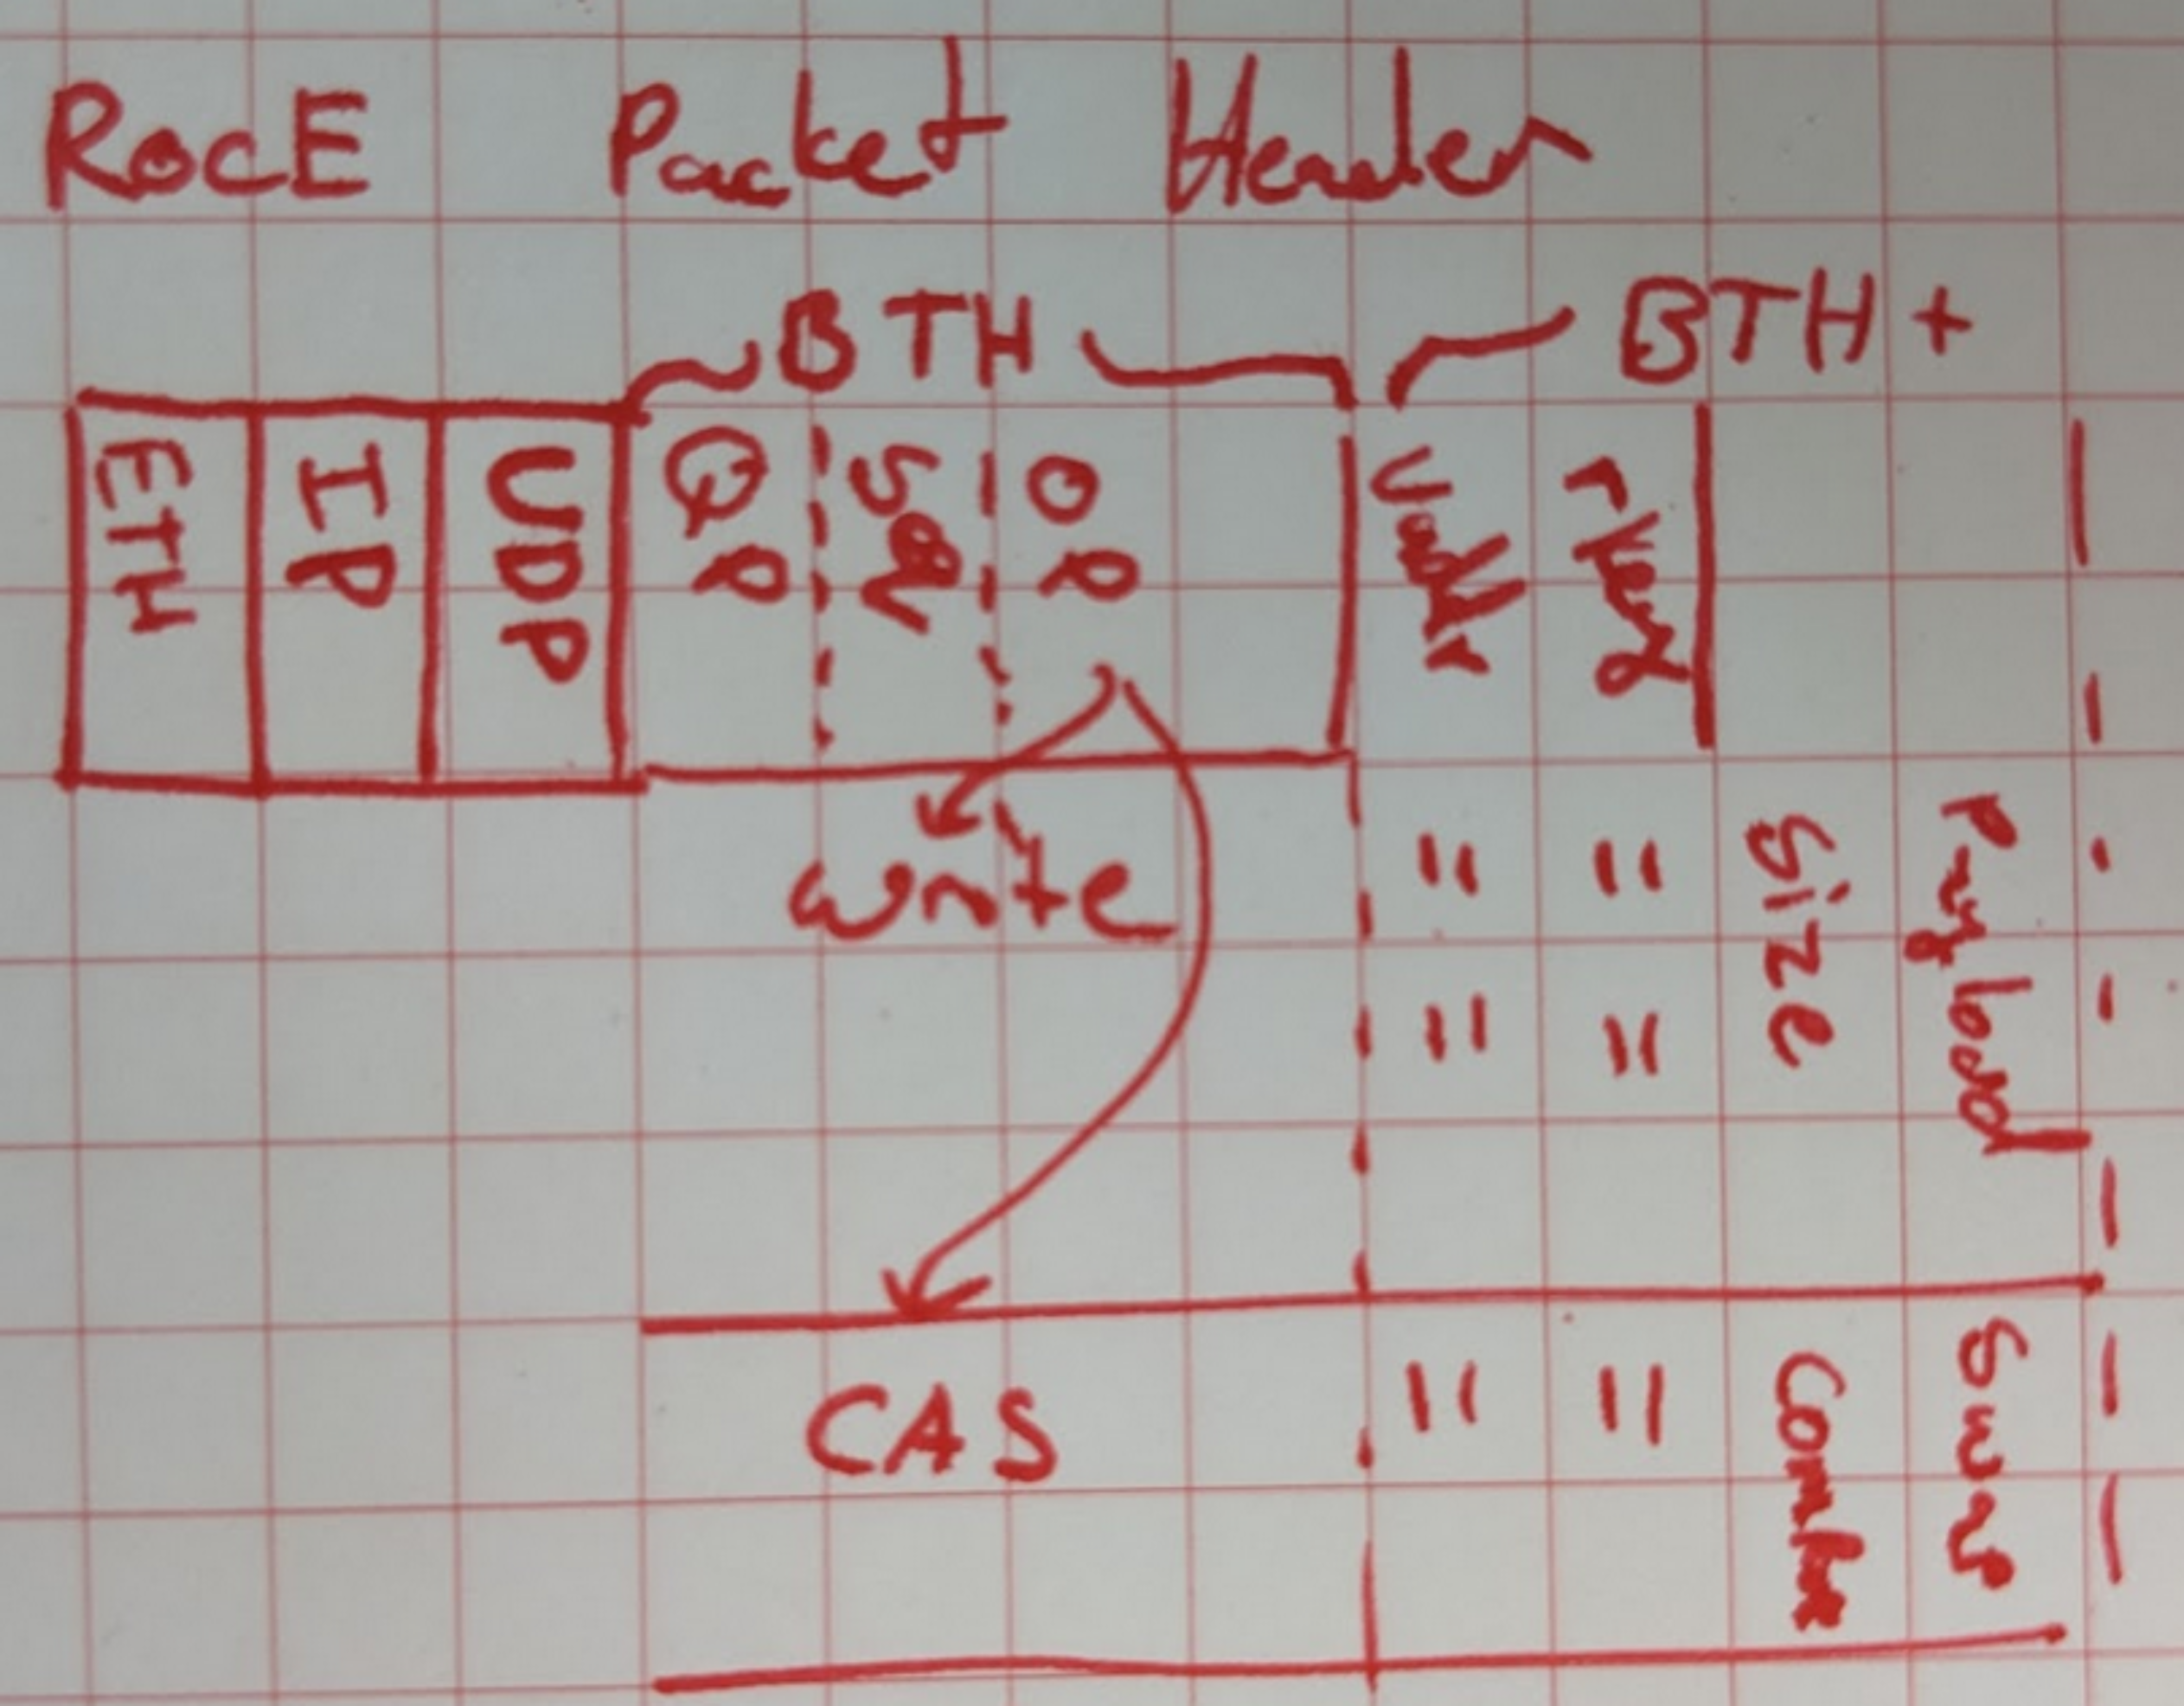 RocE Packet Header
BTH BTH+
ETH IP UDP QP Seq OP Vaddr rkey
Write " " Size Payload
" "
CAS " " Compare Swap